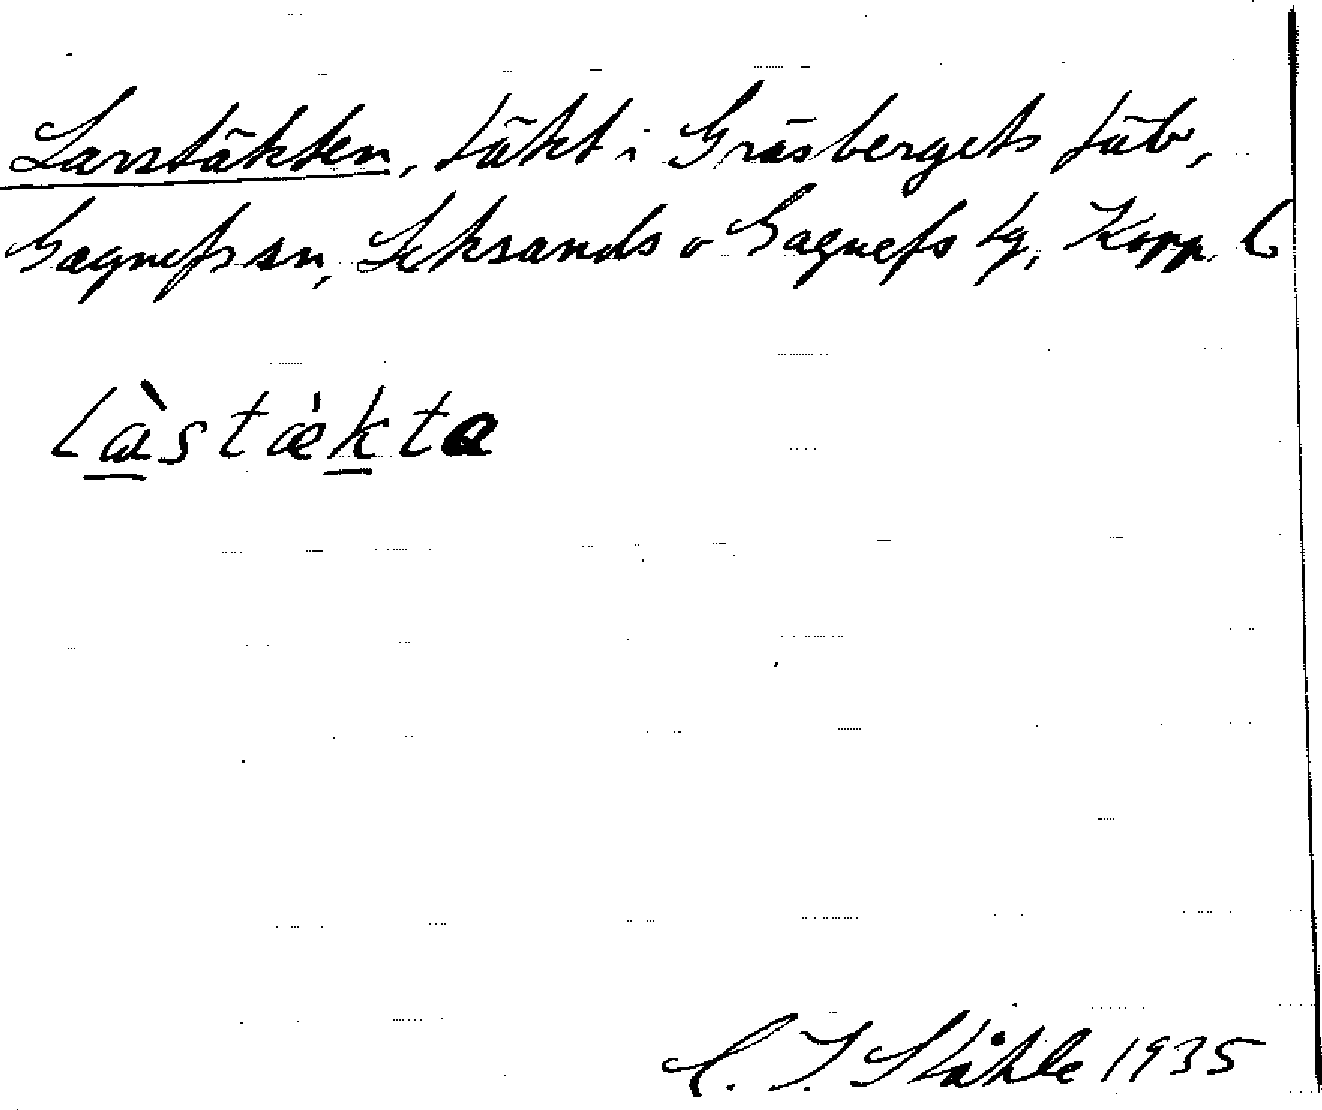 Larstäkten, täkt i Gräsbergets fäb,
Gagnefs sn, Leksands o Gagnefs tg, Kopp. l
làstækta
C. I. Ståhle 1935